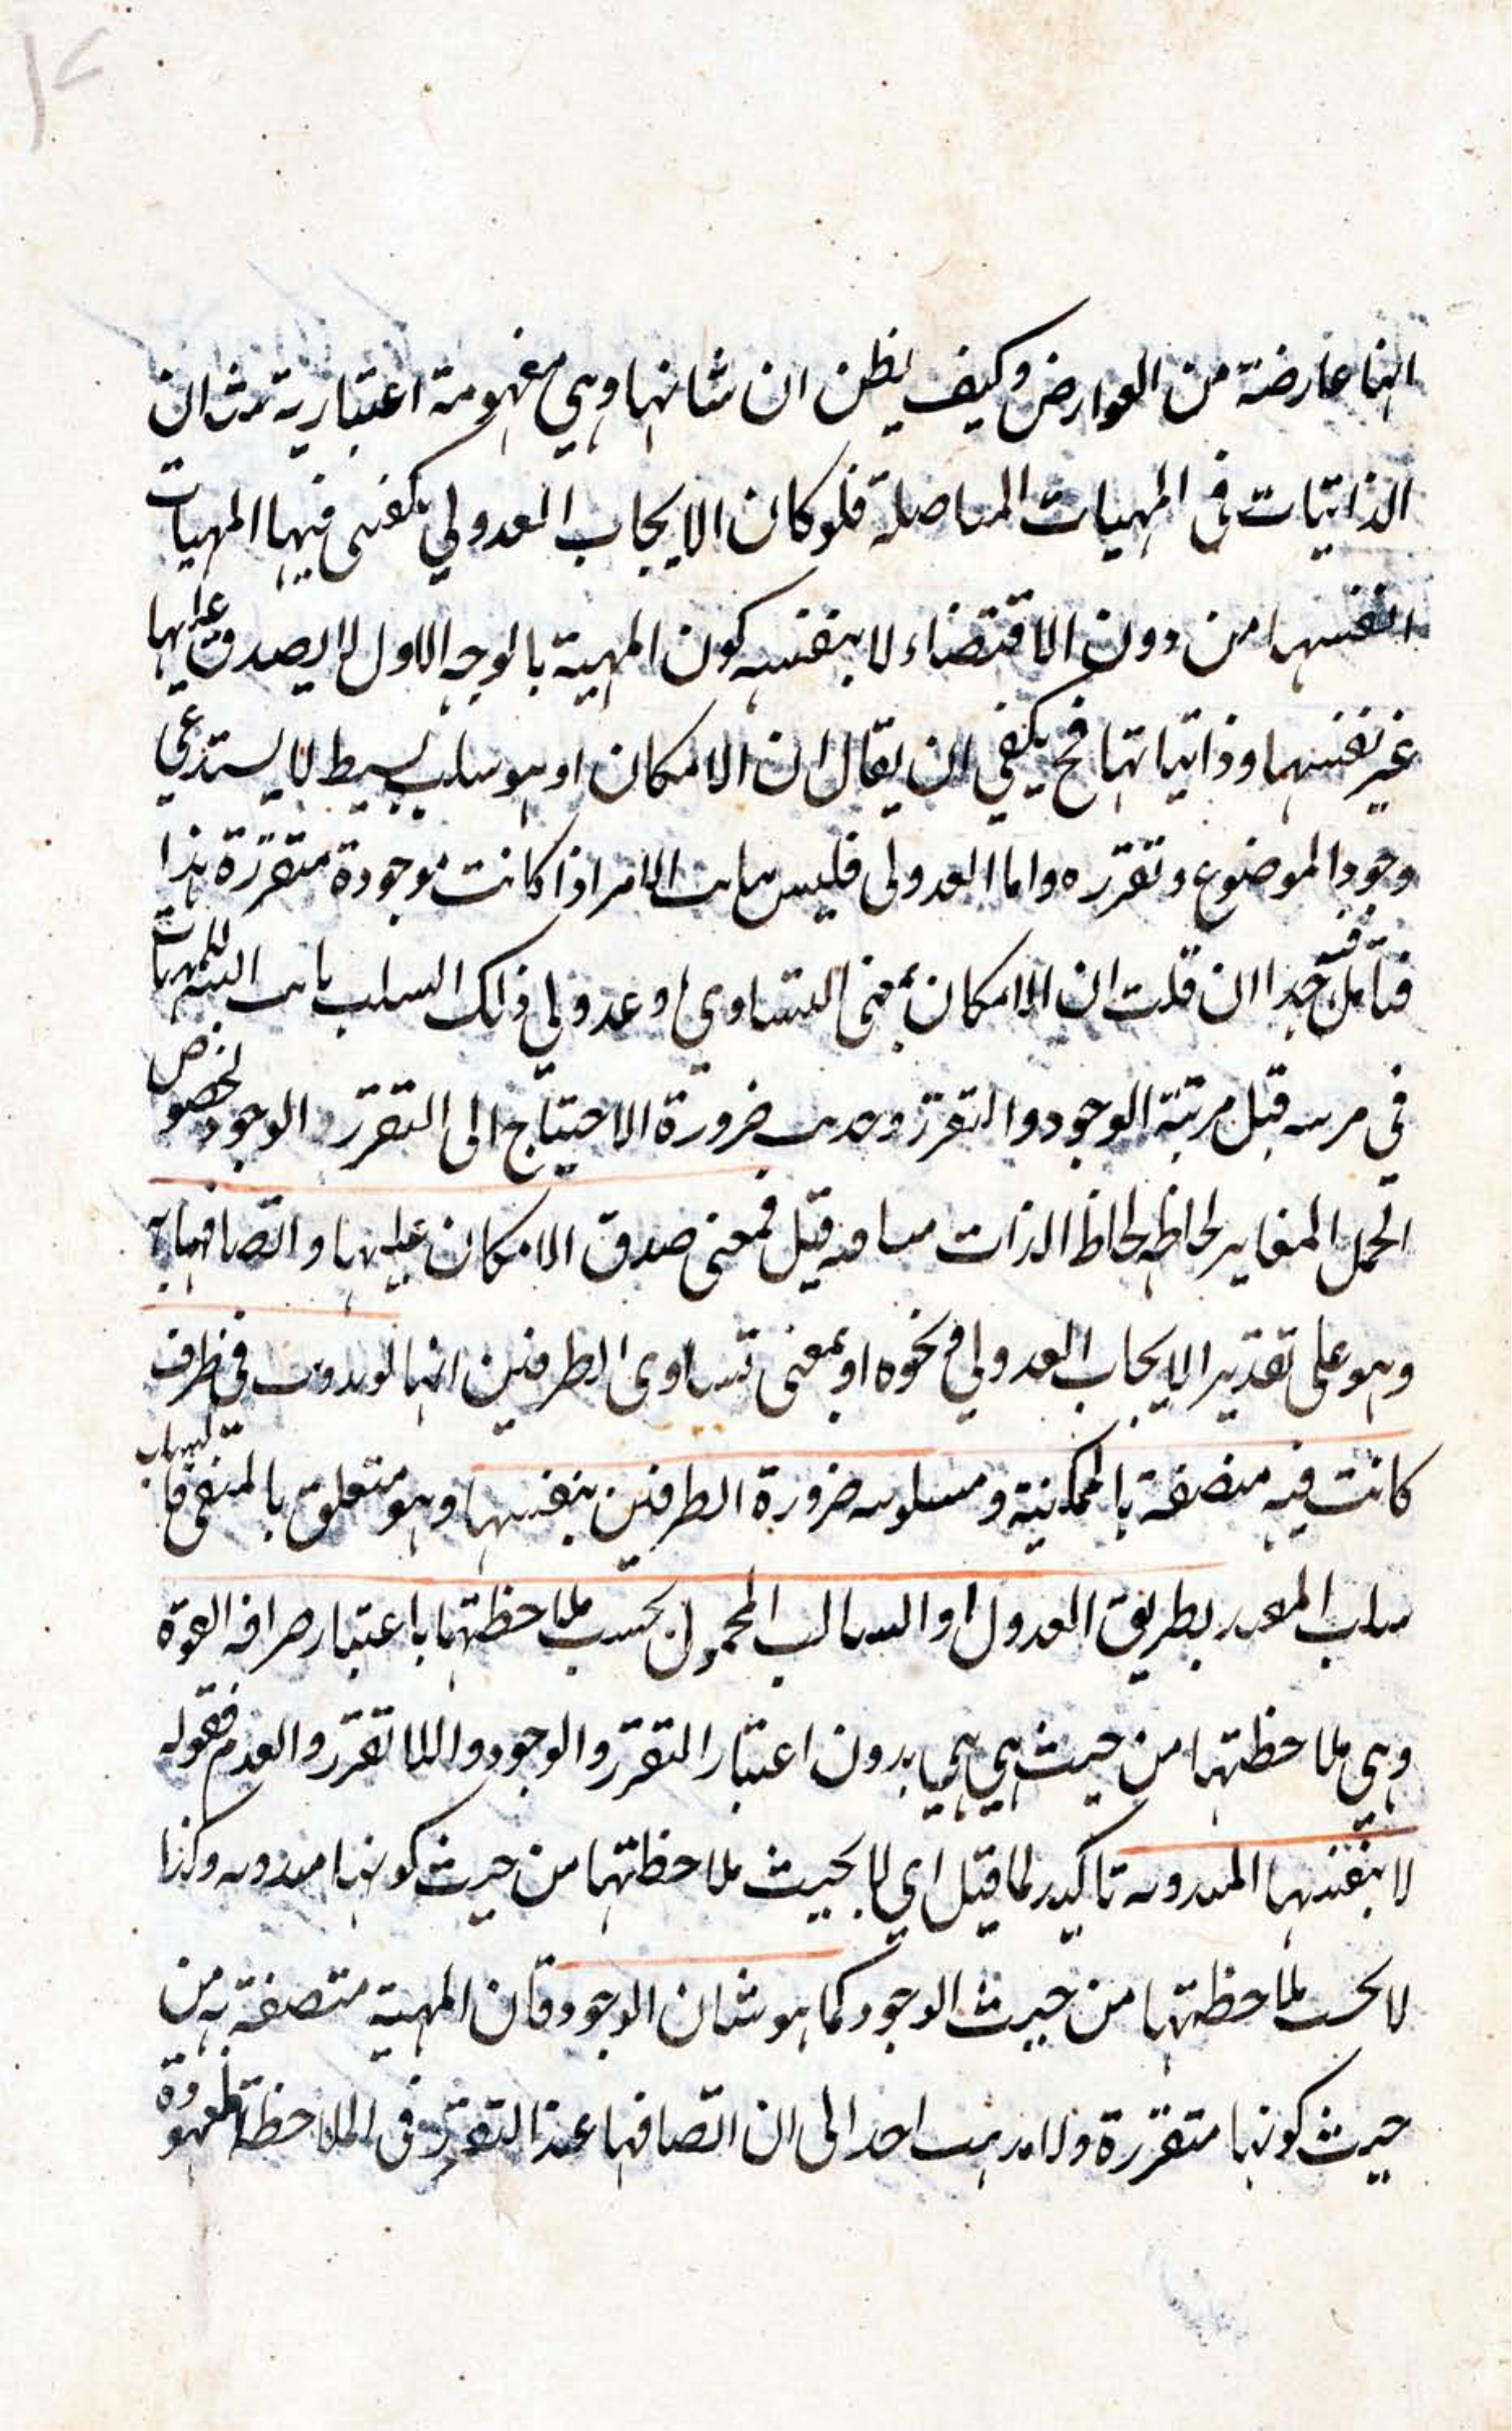 انها عارضة من العوارض وكيف يظن ان شانها وهي مفهومة اعتبارية شان
الذاتيات في المهيات المتاصلة فلو كان الايجاب العدولي يكفي فيها المهيات
انفسها من دون الاقتضاء لا بنفسه كون المهية بالوجه الاول لا يصدق عليها
غير نفسها وذاتياتها فح يكفي ان يقال ان الامكان اذ هو سلب بسيط لا يستدعي
وجود الموضوع وتقرره واما العدولي فليس الامر اذا كانت موجودة متقررة هذا
فتامل فيه جدا ان قلت ان الامكان بمعنى التساوي او عدولي ذلك السلب ثابت للمهيات
في مرتبة قبل مرتبة الوجود والتقرر ضرورة الاحتياج الى التقرر الوجود لخصوص
الحمل المغاير لحاظه لحاظ الذات قيل فمعنى صدق الامكان عليها واتصافها به
وهو على تقدير الايجاب العدولي في نحوه او بمعنى تساوى الطرفين انها لو في ظرف
كانت فيه متصفة بالممكنية ومسلوبة ضرورة الطرفين بنفسها وهو متعلق بالمنفي
سلب بطريق العدول او السالب المحمول بحسب ملاحظتها باعتبار صرافة القوة
وهي ملاحظتها من حيث هي هي بدون اعتبار التقرر والوجود واللا تقرر والعدم فقوله
لا بنفسها تاكيد لما قيل اي لا بحيث ملاحظاتها من حيث كونها وكذا
لا بحسب ملاحظتها من حيث الوجود كما هو شان الوجود فان المهية متصفة به من
حيث كونها متقررة ولا احد الى ان اتصافها عند التقرر في الملاحظة